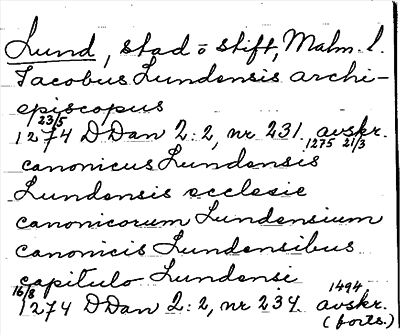 Lund, stad o stift, Malm. l.
Jacobus Lundensis archi-
episcopus
23/5 1274 DDan 2:2, nr 231 avskr. 1275 21/3
canonicus Lundensis
Lundensis ecclesie
canonicorum Lundensium
canonicis Lundensibus
capitulo Lundensi
16/8 1274 DDan 2:2, nr 234 1494 avskr.
(forts.)